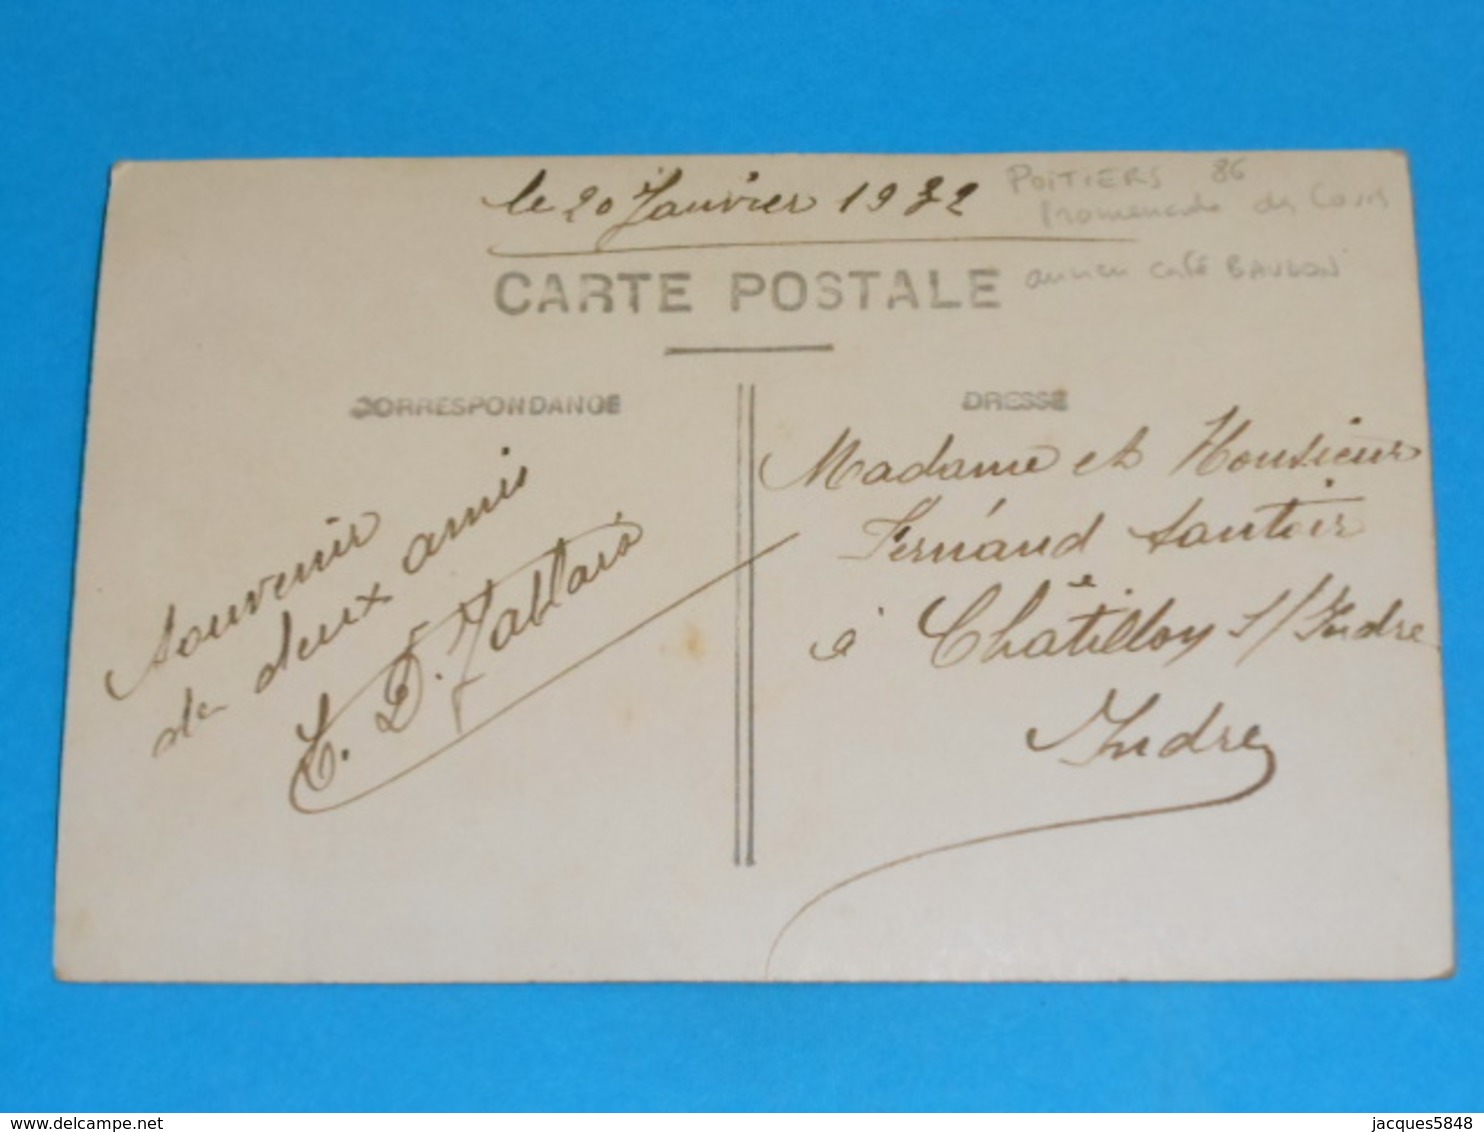 le 20 Janvier 1932
POITIERS 86
Promenade des Cours
ancien café BAULON
CARTE POSTALE
CORRESPONDANCE
DRESSE
Souvenir
de deux amis
Madame et Monsieur
Fernand Santoir
à Châtillon s/Indre
Indre
delcampe.net
jacques5848